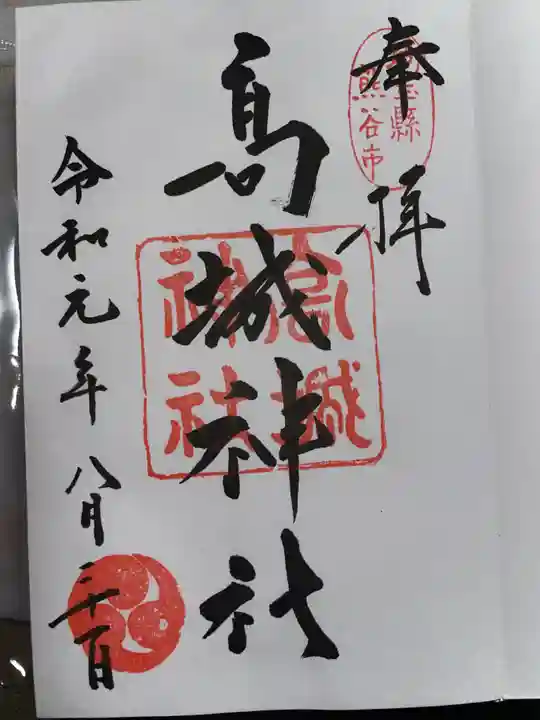 奉拝
埼玉縣
熊谷市
高城神社
高城
神社
令和元年八月二十日